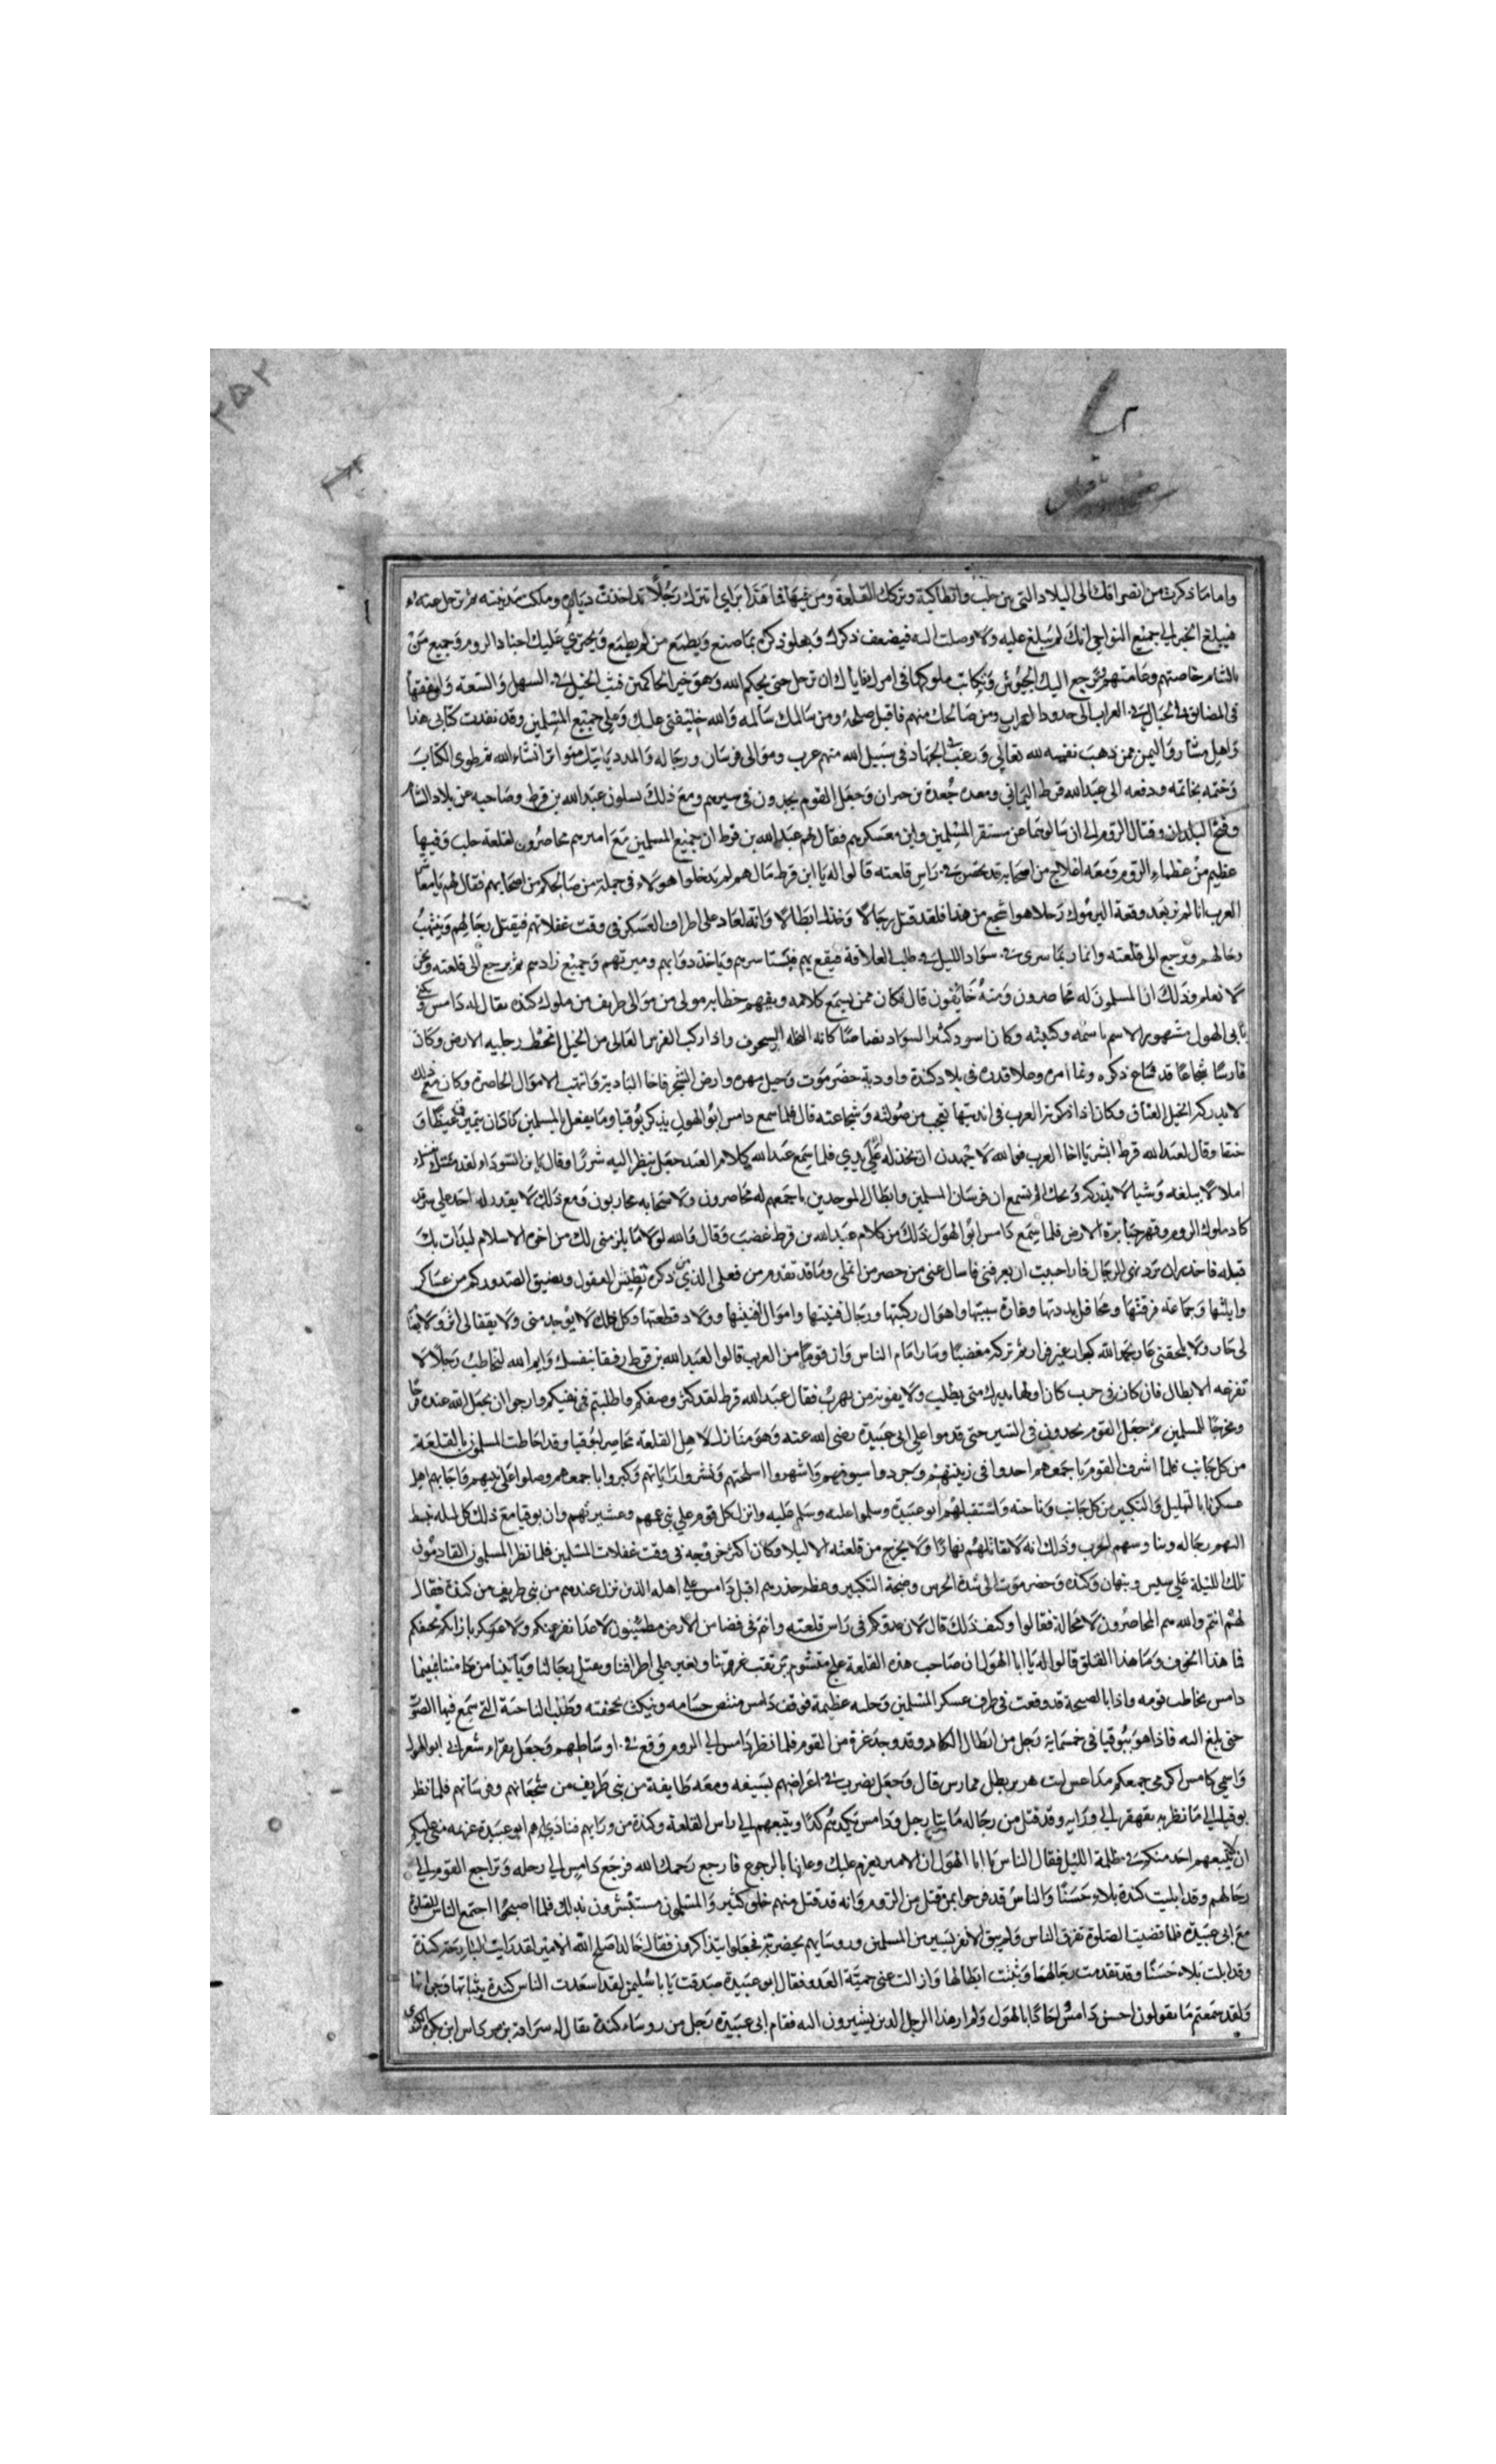 واما ما ذكرت من انصرافك الى البلاد التي بين حلب وانطاكية وتركك القلعة ومن فيها فما هذا براي اتترك رجلا قد اخذت دياره وملكت مدينته ثم ترحل عنه
فيبلغ الخبر الى جميع النواحي انك لم تبلغ عليه ولا وصلت اليه فيضعف ذكرك ويعلو ذكره بما صنع ويطمع من لم يطمع ويجترى عليك اجناد الروم وجميع من
بالشام خاصتهم وعامتهم وترجع اليك الجيوش وتكاتب ملوكها في امر فاياك ان ترحل حتى يحكم الله وهو خير الحاكمين فبث الخيل في السهل والسعة
في المضايق في الجبال الى حدود العراب ومن صالحك منهم فاقبل صلحه ومن سالمك سالمه والله خليفتي عليك وعلى جميع المسلمين وقد نفدت كتابي هذا
واهل واليمن ممن وهب نفسه لله تعالى ورغب في الجهاد في سبيل الله منهم عرب وموالى فرسان ورجاله والمدد ياتيك متواترا انشاء الله ثم طوى الكتاب
وختمه بخاتمه ودفعه الى عبد الله قرط اليماني ومعه جعدة بن جبران وجعل القوم يجدون في سيرهم ومع ذلك يسلون عبد الله بن قرط وصاحبه عن بلاد الشام
وفتح البلدان وقتال الروم الى ان سالوهما عن مستقر المسلمين واين معسكرهم فقال لهم عبد الله بن قرط ان جميع المسلمين مع اميرهم محاصرون لقلعة حلب وفيها
عظيم من عظماء الروم ومعه اعلاج من اصحابه قد تحصن في راس قلعته قالوا له يا ابن قرط مال هم لم يدخلوا هولاء في جملة من صالحكم من اصحابهم فقال لهم يا معاشر
العرب انا لم نر بعد وقعة اليرموك رجلا هو اشجع من هذا فلقد قتل رجالا وخذل ابطالا وانه لعاد على اطراف العسكر في وقت غفلاتهم فيقتل رجالهم وينهب
رحالهم ويرجع الى قلعته وانما ربما سرى في سواد الليل في طلب العلافة فيقع بهم وياخذ دوابهم وميرتهم وجميع زادهم ثم يرجع الى قلعته ونحن
لا نعلم وذلك ان المسلمون له محاصرون ومنه خايفون قال فكان ممن يسمع كلامه ويفهم خطابه مولى من موالى طريف من ملوك كنده يقال له دامس ويكنى
بابى الهول مشهور الاسم باسمه وكنيته وكان اسود كثير السواد بصاصا كانه النخلة السحوق واذا ركب الفرس العالى من الخيل تخط رجليه الارض وكان
فارسا شجاعا قد شاع ذكره ونما امره وعلا قدره في بلاد كندة واودية حضرموت وجبل مهره وارض الشحر فاخا البادية وانتهب الاموال الحاضره وكان مع ذلك
لا يدركه الخيل العتاق وكان اذا ذكرته العرب في انديتها تعجب من صولته وشجاعته قال فلما سمع دامس ابو الهول بذكر بوقيا وما يفعل بالمسلمين كاد ان يتميز غيظا و
حنقا وقال لعبد الله قرط ابشر يا اخا العرب فوالله لاجهدن ان يخذله الله على يدي فلما سمع عبد الله كلام العبد جعل ينظر اليه شزرا وقال يا ابن السوداء لقد
املا لا يبلغه وشيا لا يدركه ويحك الم تسمع ان فرسان المسلمين وابطال الموحدين باجمعهم له محاصرون ولاصحابه محاربون ومع ذلك لا يقدر له احد على
كاد ملوك الروم وقهر جبابرة الارض فلما سمع دامس ابو الهول ذلك من كلام عبد الله بن قرط غضب وقال والله لولا ما يلزمني لك من اخوة الاسلام لبدات بك
قبله فاحذر ان تزدرى الرجال فان احببت ان تعرفني فاسال عني من حضر من اهلى وما قد تقدم من فعلى الذي ذكره تطيش العقول ويضيق الصدور كم من عساكر
وابلتها وجماعة فرقتها ومحافل بددتها وغارة سبيتها واهوال ركبتها ورجال فنيتها واموال افنيتها وولاد قطعتها وكل ذلك لا يوجد منى ولا يقفا لى اثر ولا
لى جار ولا يلحقني عار بحمد الله كرار غير فرار ثم تركه مغضبا وسار امام الناس وان قوما من العرب قالوا لعبد الله بن قرط رفيقا بنفسك وايم الله لتخاطب رجلا لا
تفزعه الابطال فان كان في حرب كان اولها يدرك متى يطلب ولا يفوته من يهرب فقال عبد الله قرط لقد كثر وصفكم واطلبتم في نفسكم وارجوا ان يجعل الله عنده فرجا
ومخرجا للمسلمين ثم جعل القوم يجدون في السير حتى قدموا على ابى عبيدة رضى الله عنه وهو منازل لاهل القلعه محاصر لبوقيا وقد احاطت المسلمون بالقلعة
من كل جانب فلما اشرف القوم باجمعهم اخدوا في زينتهم وجردوا سيوفهم واشهروا اسلحتهم ونشروا راياتهم وكبروا باجمعهم وصلوا على نبيهم فاجابهم اهل
عسكرنا بالتهليل والتكبير من كل جانب وناحيه واستقبلهم ابو عبيدة وسلموا عليه وسلم عليه وانزل كل قوم على بنى عمهم وعشيرتهم وان بوقيا مع ذلك كل ليله يهبط
اليهم برجاله ويناوسهم الحرب وذلك انه لا يقاتلهم نهارا ولا يخرج من قلعته الا ليلا وكان اكثر خروجه في وقت غفلات المسلمين فلما نظر المسلمون القادمون
تلك الليلة على سنبس ونبهان وكنده وحضرموت الى شدة الحرس وضجة التكبير وعظم حذرهم اقبل دامس على اهله الذين نزل عندهم من بنى طريف من كندة فقال
لهم انتم والله هم المحاصرون لا محالة فقالوا وكيف ذلك قال لان عدوكم في راس قلعته وانتم في فضا من الارض مطمئنون لاحدا يفزعنكم ولا عسكر بازايكم يخيفكم
فما هذا الخوف وما هذا القلق قالوا له يا ابا الهول ان صاحب هذه القلعة علج مشوم يرتقب غرتنا ويغير على اطرافنا ويقتل رجالنا وياتينا من مامننا فبينما
دامس يخاطب قومه واذا بالصيحة قد وقعت في طرف عسكر المسلمين وجلبه عظيمة فوقف دامس منتضى حسامه وتنكب بجحفته وطلب الناحية التي سمع فيها الصوت
حتى بلغ اليه فاذا هو ببوقيا في خمسماية رجل من ابطال الكفار وقد وجد غرة من القوم فلما نظر دامس الى الروم وقع في اوساطهم وجعل يقراء شعر انى ابو الهول
واسمى دامس اكر في جمعكم مداعس ليث هزبر بطل ممارس قال وجعل يضرب في اعراضهم بسيفه ومعه طايفة من بنى طريف من شجعانهم وفرسانهم فلما نظر
بوقيا الى ما نظر به تقهقر الى ورايه وقد قتل من رجاله مايتا رجل ودامس يكدهم كدا ويتبعهم الى راس القلعة وكندة من ورايهم فناداهم ابو عبيدة عزيمه منى عليكم
ان لا يتبعهم احد منكم في ظلمة الليل فقال الناس يا ابا الهول ان الامير يعزم عليك وعلينا بالرجوع فارجع رحمك الله فرجع دامس الى رحله وتراجع القوم الى
رحالهم وقد ابليت كندة بلاء حسنا والناس قد فرحوا بمن قتل من الروم وانه قد قتل منهم خلق كثير والمسلمون مستبشرون بذلك فلما اصبحوا اجتمع الناس للصلوة
مع ابى عبيدة فلما قضيت الصلوة تفرق الناس ولم يبق الا نفر يسير من المسلمين وروسايهم بحضرته فجعلوا يتذاكرون فقال خالد اصلح الله الامير لقد رايت البارحة كندة
وقد ابلت بلاء حسنا وقد تقدمت رجالها وثبتت ابطالها وازالت عنى حمية العدو فقال ابو عبيدة صدقت يا ابا سليمن لقد اسعدت الناس كندة بثباتها وجراتها
ولقد سمعتم ما يقولون احسن دامس اجاد ابا الهول ولم ار هذا الرجل الذين يشيرون اليه فقام الى ابى عبيدة رجل من روساء كندة يقال له سراقه بن مرداس ابن يكرب